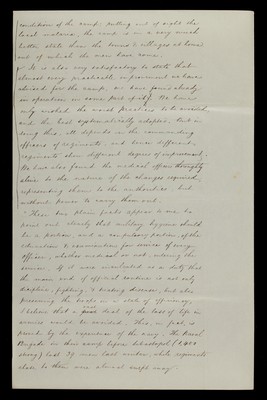 condition of the camp. putting out of sight the
local malaria, the camp is in a very much
better state than the towns & villages at home
out of which the men have come.
It is also very satisfactory to state that
almost every practicable improvement we have
advised for the camp, we have found already
in operation in some part of it. We have
only worked the worst practices to be avoided,
and the best systematically adopted. But in
doing this, all depends on the commanding
officers of regiments, and hence different
regiments show different degrees of improvement.
We have also found the medical officers thoroughly
alive to the nature of the changes required,
representing them to the authorities, but
without power to carry them out.
"These two plain facts appear to me to
point out clearly that military hygiene should
be a portion, and a compulsory portion, of the
education & examination for service of every
officer, whether medical or not, entering the
service. If it was inculcated as a duty that
the main end of official routine is not only
discipline, fighting, & treating disease, but also
preserving the troops in a state of efficiency,
I believe that a great deal of the loss of life in
armies would be avoided. This, in fact, is
proved by the experience of the army. The Naval
Brigade in their camp before Sebastopol (1,400
strong) lost 39 men last winter, while regiments
close to them were almost swept away.